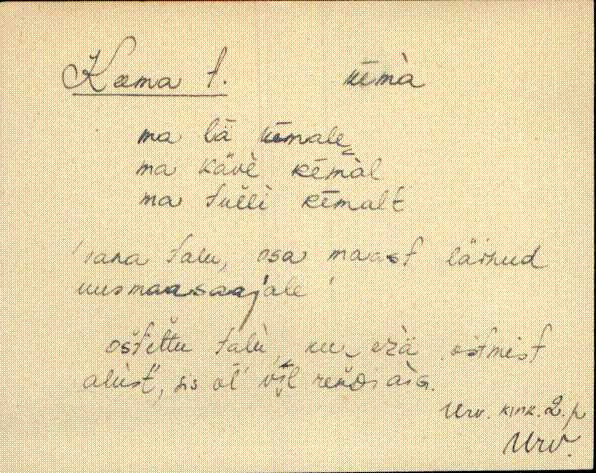 Kema t. kēmà
ma lä kēmale
ma kävè kēmàl
ma tulli kēmalt
vana talu, osa maast läinud
uusmaasaajale
ošťettu talù, ku ostmist
aĺust, sis oĺ viil rendi
Urv. kink. 2. p
Urv.